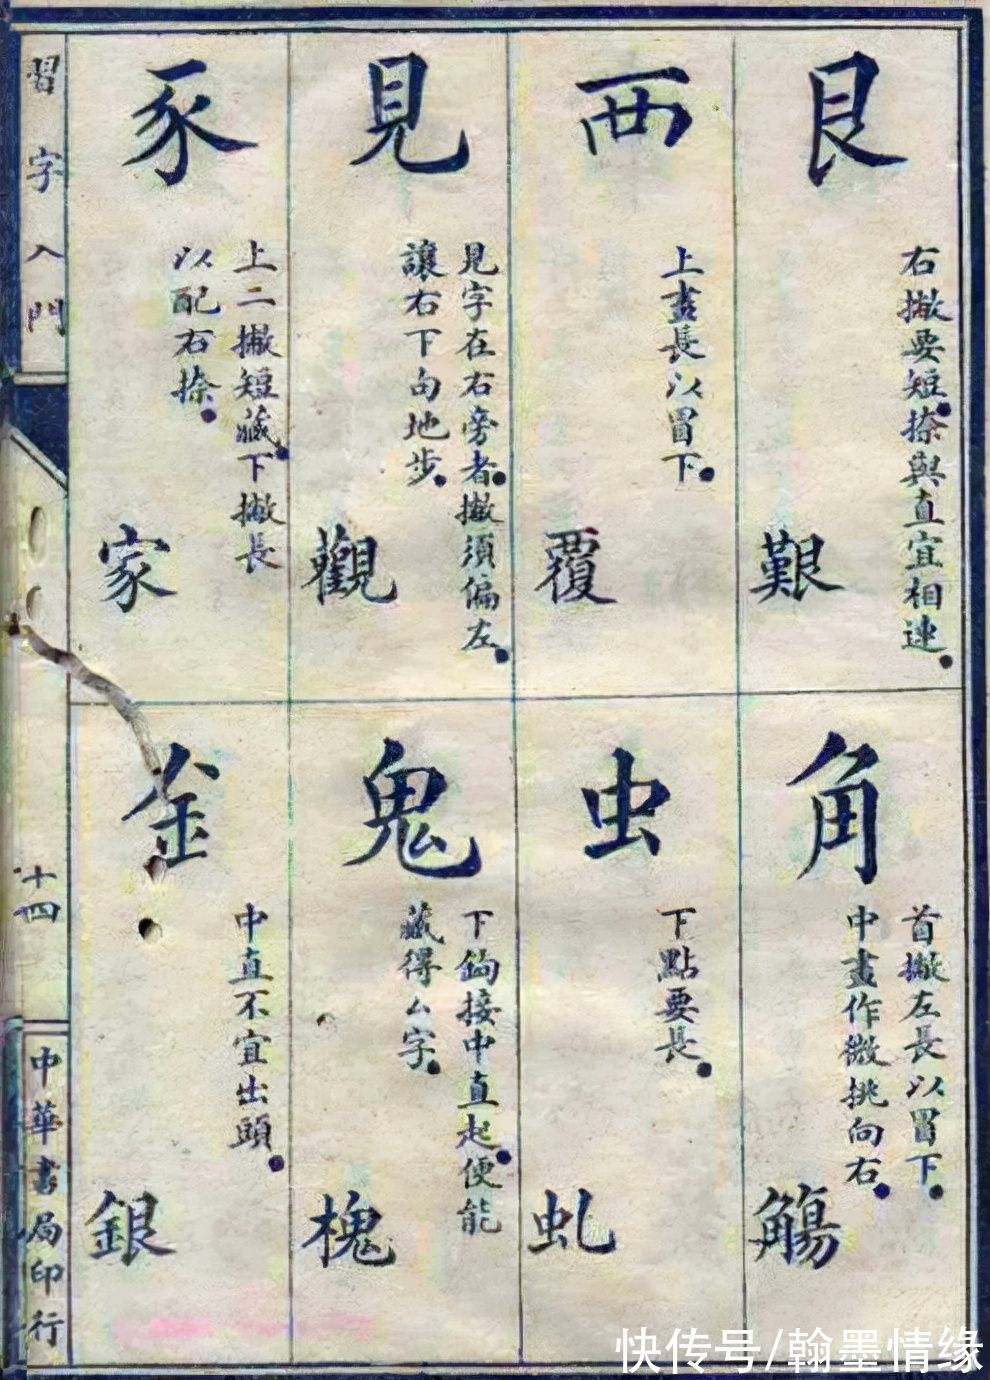 艮
右撇要短。捺與直宜相連。
艱
西
上畫長以冒下。
覆
見
見字在右旁者。撇須偏左。
讓右下勾地步。
觀
豕
上二撇短藏。下撇長
以配右捺。
家
角
首撇左長以冒下。
中畫作微挑向右。
觴
虫
下點要長。
虬
鬼
下鉤接中直起。便能
藏得厶字。
槐
金
中直不宜出頭。
銀
習字入門
十四
中華書局印行
快传号/翰墨情缘